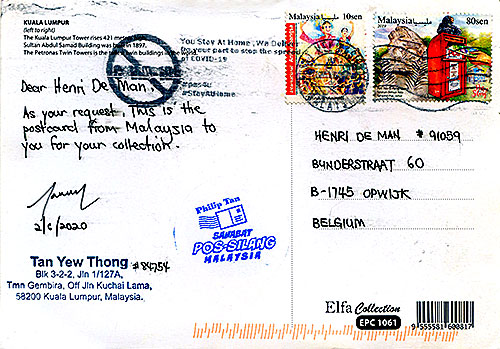 KUALA LUMPUR
(left to right)
The Kuala Lumpur Tower rises 421 metres high.
Sultan Abdul Samad Building was built in 1897.
The Petronas Twin Towers is the tallest twin buildings in the world.
You Stay At Home, We Deliver
Do your part to stop the spread
of COVID-19
#pos4u
#StayAtHome
Malaysia 10sen
Malaysia 80sen
2019
Dear Henri De Man,
As your request, This is the
postcard from Malaysia to
you for your collection.
2/6/2020
Tan Yew Thong #84754
Blk 3-2-2, Jln 1/127A,
Tmn Gembira, Off Jln Kuchai Lama,
58200 Kuala Lumpur, Malaysia.
Philip Tan
SAHABAT
POS-SILANG
MALAYSIA
HENRI DE MAN # 91059
BYNDERSTRAAT 60
B-1745 OPWIJK
BELGIUM
Elfa Collection
EPC 1061
9 555581 600817